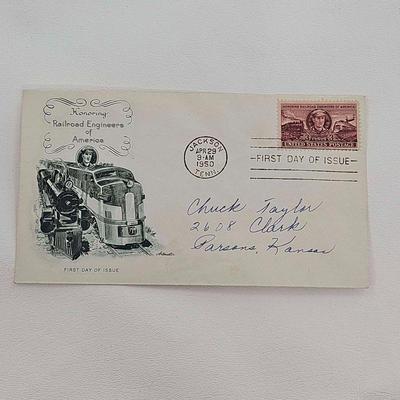 Honoring
Railroad Engineers
of
America
FIRST DAY OF ISSUE
JACKSON
APR 29
9-AM
1950
TENN.
HONORING RAILROAD ENGINEERS OF AMERICA
UNITED STATES POSTAGE
FIRST DAY OF ISSUE
Chuck Taylor
2608 Clark
Parsons, Kansas